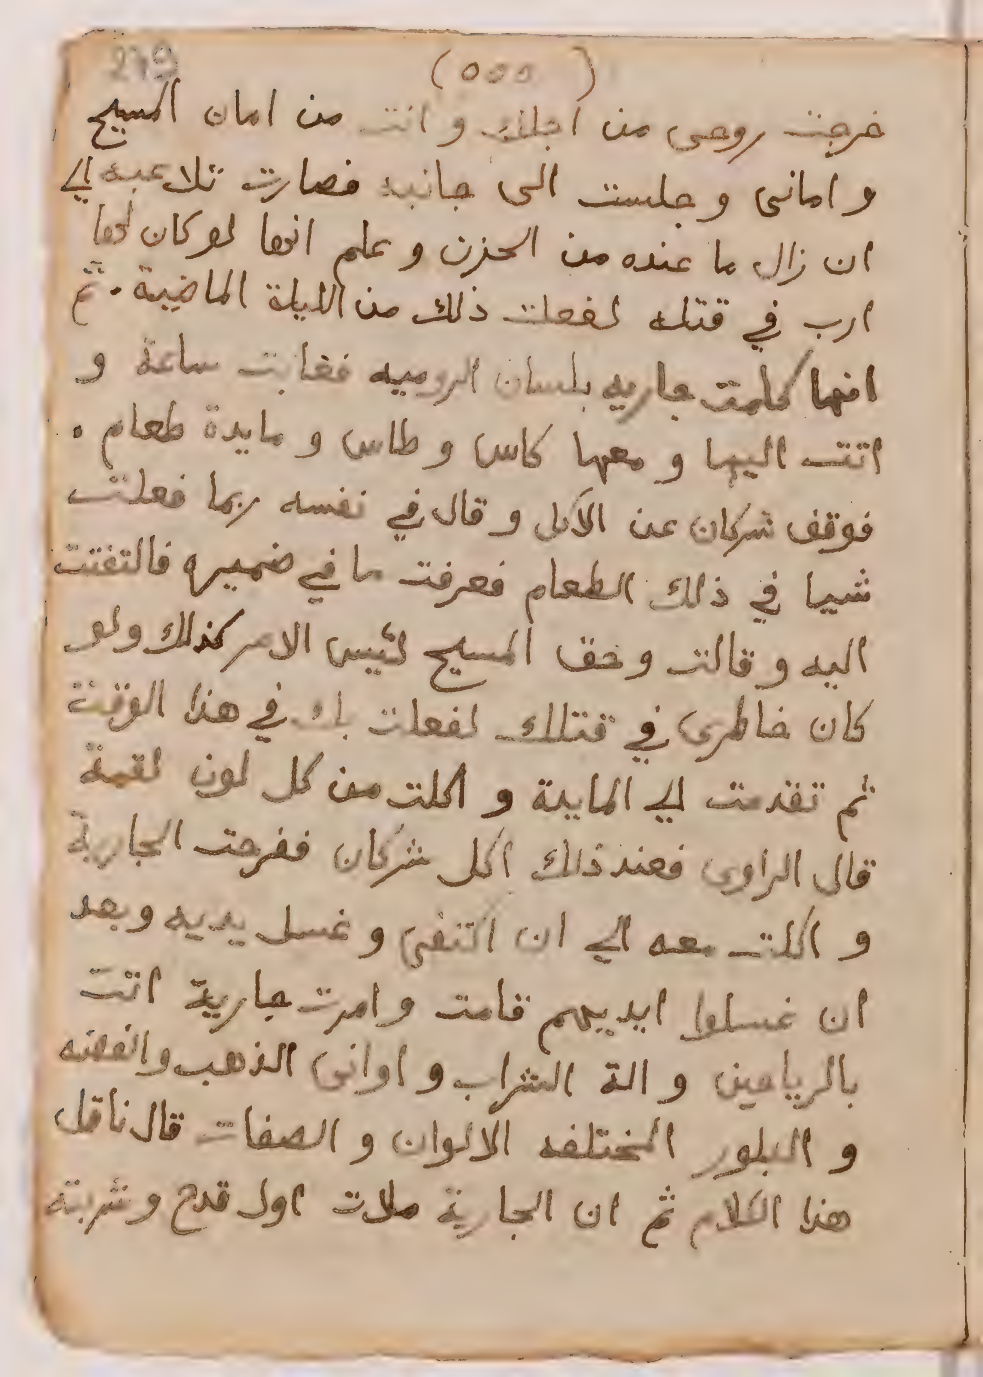 279
(٥٥٥)
خرجت روحى من اجلك و انت من امان المسيح
و امانى و جلست الى جانبه فصارت تلاعبه الي
ان زال ما عنده من الحزن و علم انها لو كان لها
ارب في قتله لفعلت ذلك من الليلة الماضية . ثم
انها كلمت جاريه بلسان الروميه فغابت ساعة و
اتت اليها و معها كاس و طاس و مايدة طعام .
فوقف شركان عن الاكل و قال في نفسه ربما فعلت
شيا في ذلك الطعام فعرفت ما في ضميره فالتفتت
اليه و قالت و حق المسيح ليس الامر كذلك ولو
كان خاطرى في قتلك لفعلت بك في هذا الوقت
ثم تقدمت الي المايدة و اكلت من كل لون لقمة
قال الراوى فعند ذلك اكل شركان ففرحت الجارية
و اكلت معه الي ان اكتفى و غسل يديه و بعد
ان غسلوا ايديهم قامت و امرت جارية اتت
بالرياحين و الة الشراب و اوانى الذهب والفضه
و البلور المختلفه الالوان و الصفات قال ناقل
هذا الكلام ثم ان الجارية ملات اول قدح و شربته